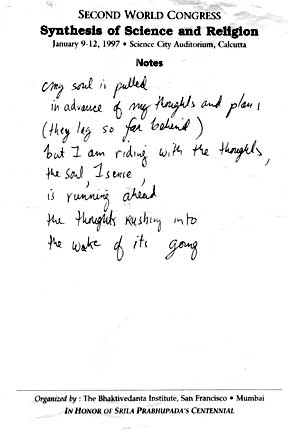 SECOND WORLD CONGRESS
Synthesis of Science and Religion
January 9-12, 1997 • Science City Auditorium, Calcutta
Notes
my soul is pulled
in advance of my thoughts and plans
(they lag so far behind)
but I am riding with the thoughts,
the soul, I sense,
is running ahead
the thoughts rushing into
the wake of its going
Organized by : The Bhaktivedanta Institute, San Francisco • Mumbai
IN HONOR OF SRILA PRABHUPADA'S CENTENNIAL